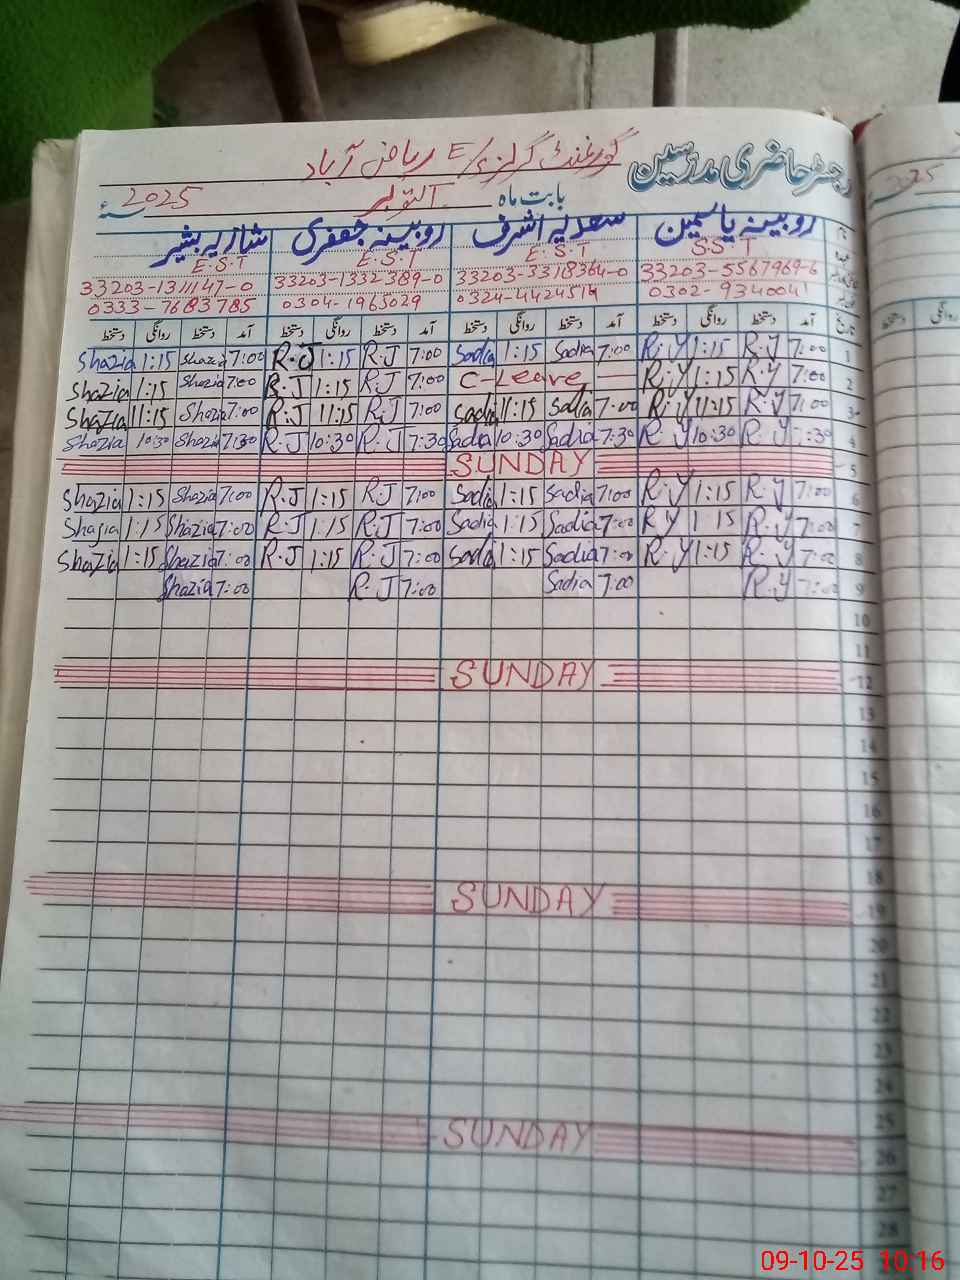 رجسٹر حاضری مدرسین گورنمنٹ گرلز E/S ریاض آباد
بابت ماہ اکتوبر 2025ء
روبینہ یاسمین سعدیہ اشرف روبینہ جعفری شازیہ بشیر
S.S.T E.S.T E.S.T E.S.T
33203-5567969-6 33203-3318364-0 33203-1332389-0 33203-1311147-0
0302-9340041 0324-4424514 0304-1965029 0333-7683785
تاریخ آمد دستخط روانگی دستخط آمد دستخط روانگی دستخط آمد دستخط روانگی دستخط آمد دستخط روانگی دستخط
Shazia 1:15 Shazia 7:00 R.J 1:15 R.J 7:00 Sadia 1:15 Sadia 7:00 R.Y 1:15 R.Y 7:00 1
Shazia 1:15 Shazia 7:00 R.J 1:15 R.J 7:00 C-Leave R.Y 1:15 R.Y 7:00 2
Shazia 11:15 Shazia 7:00 R.J 11:15 R.J 7:00 Sadia 11:15 Sadia 7:00 R.Y 11:15 R.Y 7:00 3
Shazia 10:30 Shazia 7:30 R.J 10:30 R.J 7:30 Sadia 10:30 Sadia 7:30 R.Y 10:30 R.Y 7:30 4
SUNDAY 5
Shazia 1:15 Shazia 7:00 R.J 1:15 R.J 7:00 Sadia 1:15 Sadia 7:00 R.Y 1:15 R.Y 7:00 6
Shazia 1:15 Shazia 7:00 R.J 1:15 R.J 7:00 Sadia 1:15 Sadia 7:00 R.Y 1:15 R.Y 7:00 7
Shazia 1:15 Shazia 7:00 R.J 1:15 R.J 7:00 Sadia 1:15 Sadia 7:00 R.Y 1:15 R.Y 7:00 8
Shazia 7:00 R.J 7:00 Sadia 7:00 R.Y 7:00 9
10
11
SUNDAY 12
13
14
15
16
17
18
SUNDAY 19
20
21
22
23
24
25
SUNDAY 26
27
28
2025
دستخط روانگی
09-10-25 10:16